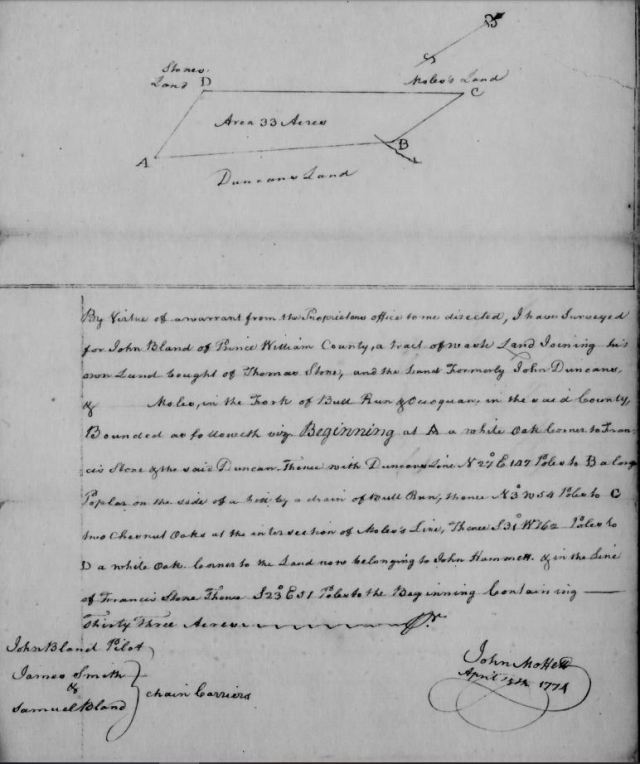 B
Stones
Land
D
Moles's Land
C
Area 33 Acres
B
A
Duncans Land
By Virtue of a warrant from the Proprietors office to me directed, I have Surveyed
for John Bland of Prince William County, a tract of waste Land Joining his
own Land bought of Thomas Stone, and the Land Formerly John Duncans,
& Moles, in the Fork of Bull Run & Occoquan, in the said County,
Bounded as followeth viz. Beginning at A a white Oak Corner to Fran-
cis Stone & the said Duncan Thence with Duncans Line N 27° E 147 Poles to B a large
Poplar on the side of a hill by a drain of Bull Run, thence N 3° W 54 Poles to C
two Chesnut Oaks at the intersection of Moles's Line, Thence S 31° W 162 Poles to
D a white Oak Corner to the Land now belonging to John Hammett & in the Line
of Francis Stone Thence S 23° E 51 Poles to the Beginning Containing
Thirty Three Acres
John Bland Pilot
James Smith
&
Samuel Bland
Chain Carriers
John Moffett
April 1774